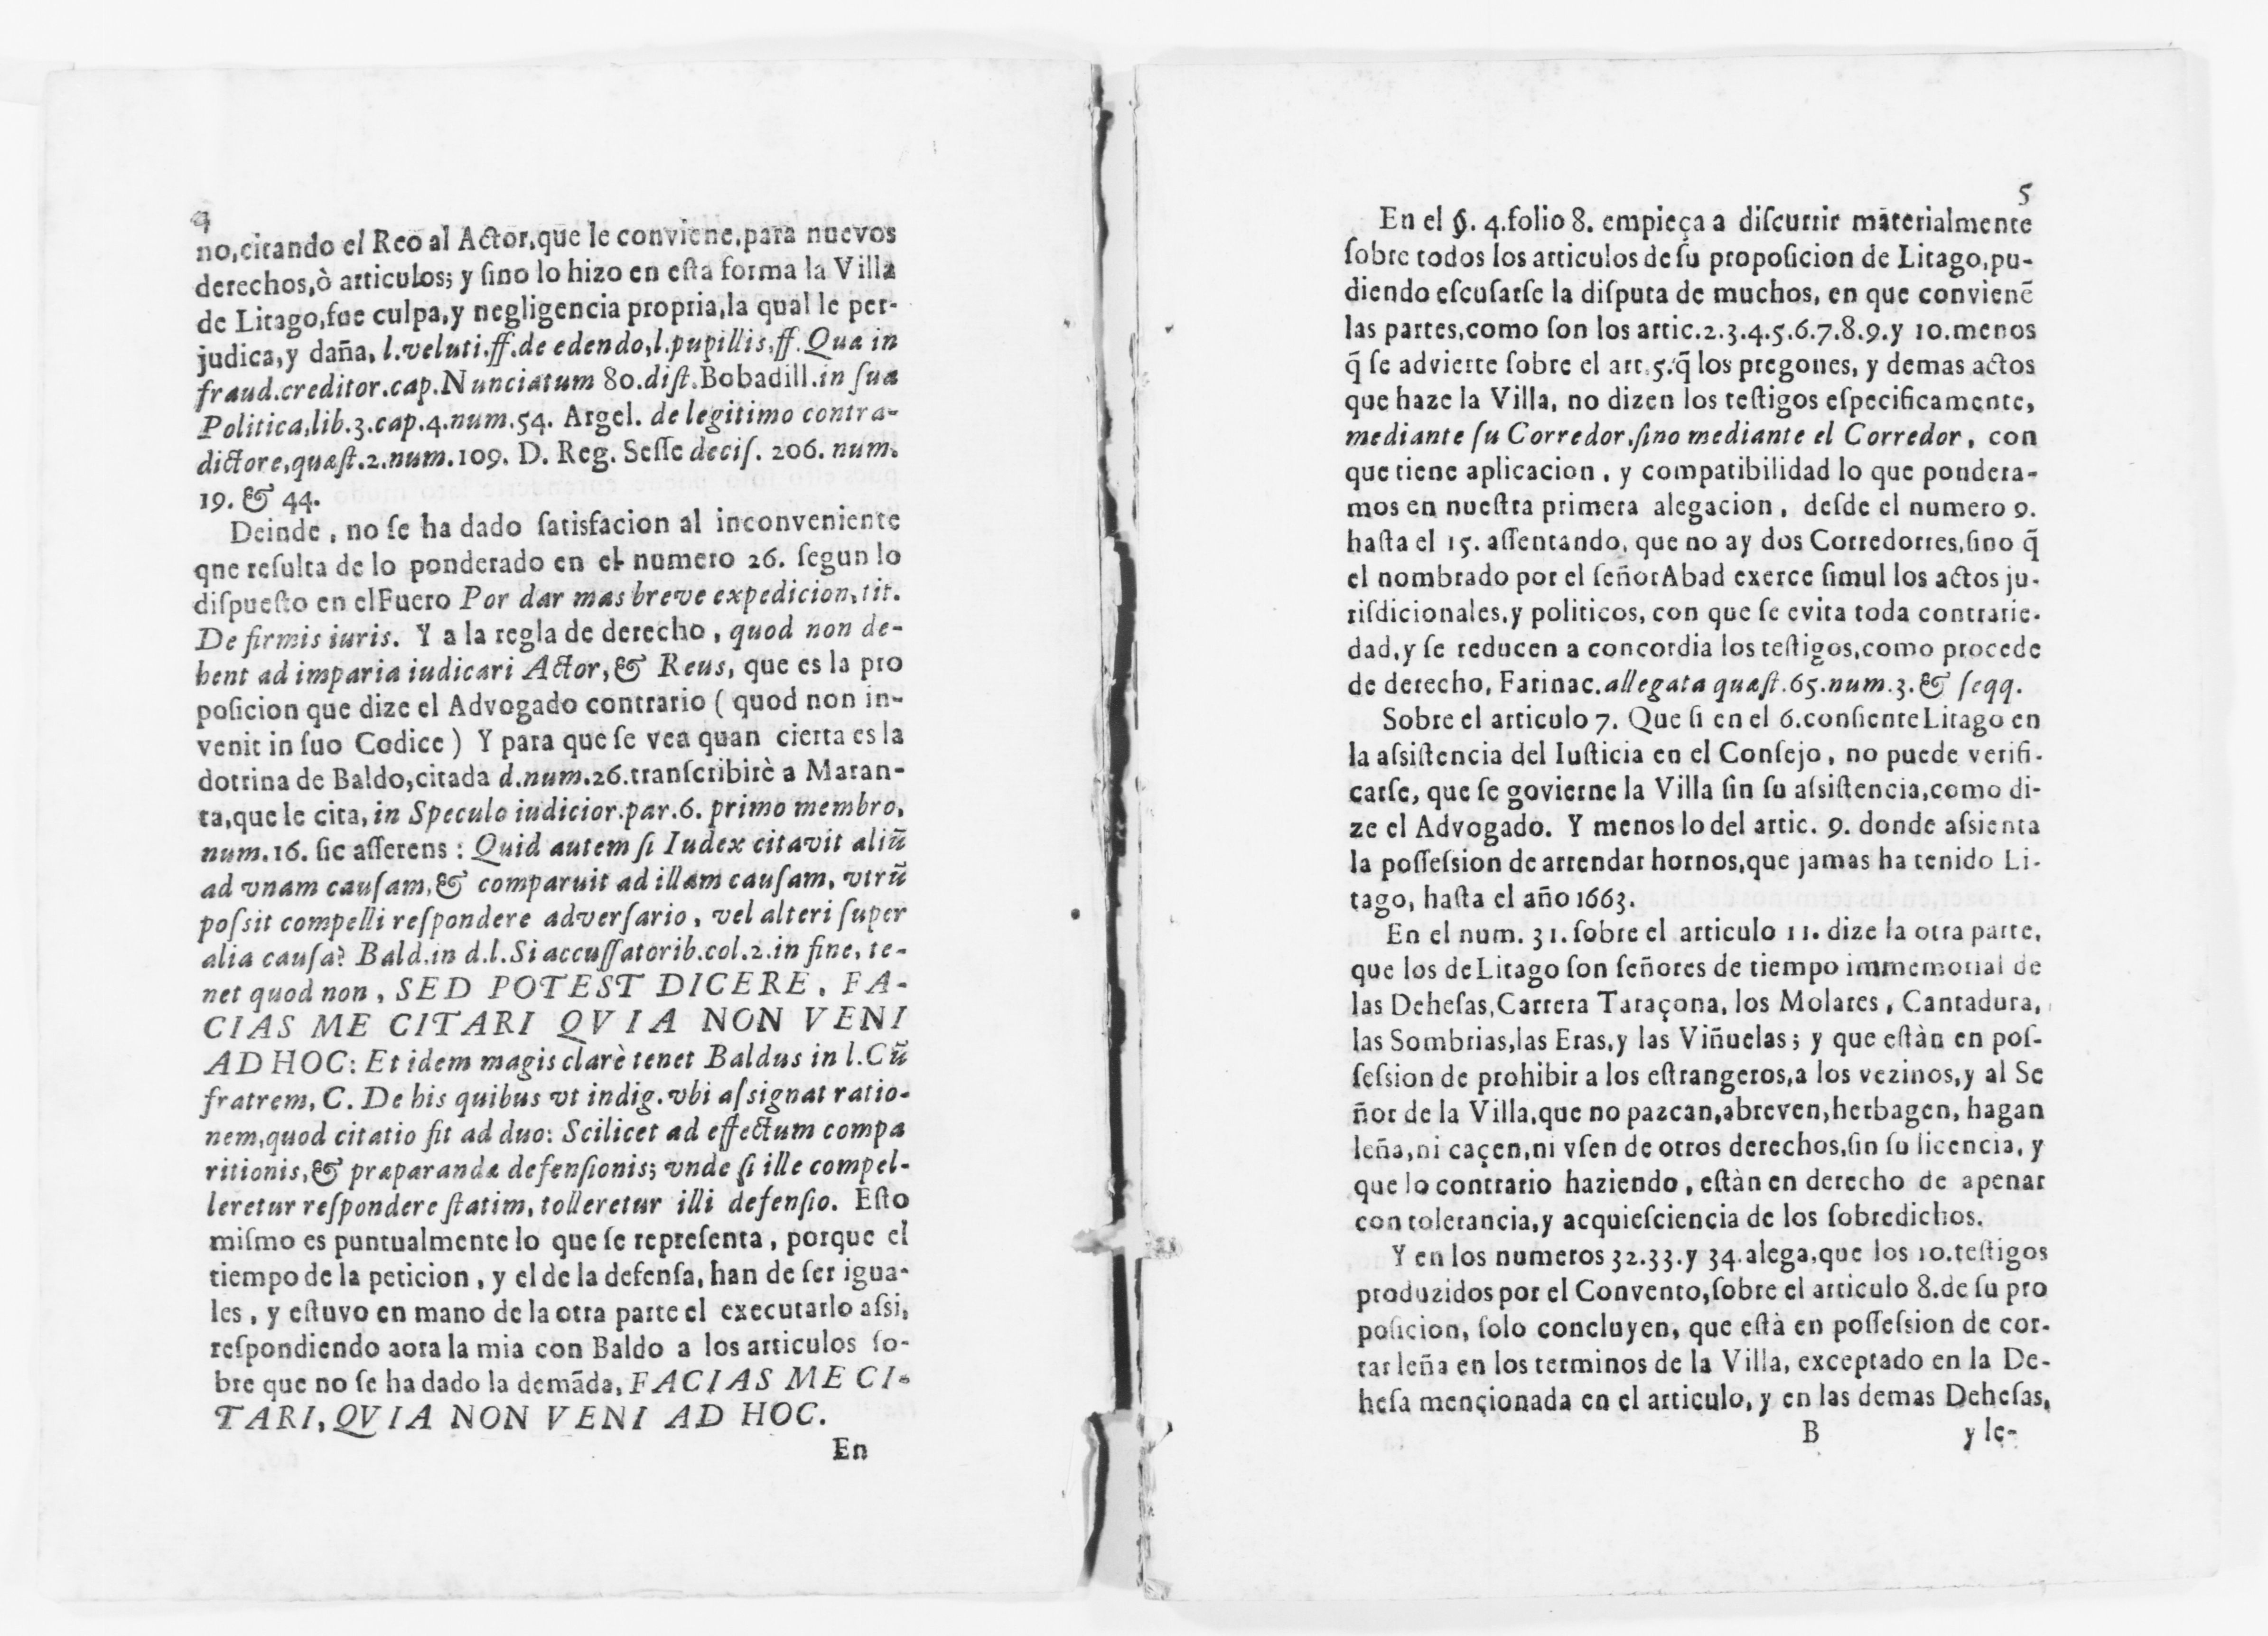 4
no,citando el Reo al Actor,que le conviene,para nuevos
derechos,ò articulos; y ſino lo hizo en eſta forma la Villa
de Litago,fue culpa,y negligencia propria,la qual le per-
judica,y daña, l.veluti.ff.de edendo,l.pupillis,ff.Qua in
fraud.creditor.cap.Nunciatum 80.diſt.Bobadill.in ſua
Politica,lib.3.cap.4.num.54. Argel. de legitimo contra-
dictore,quæſt.2.num.109. D. Reg. Seſſe deciſ. 206. num.
19. & 44.
Deinde, no ſe ha dado ſatisfacion al inconveniente
qne reſulta de lo ponderado en el numero 26. ſegun lo
diſpueſto en elFuero Por dar mas breve expedicion,tit.
De firmis iuris. Y a la regla de derecho, quod non de-
bent ad imparia iudicari Actor,& Reus, que es la pro
poſicion que dize el Advogado contrario ( quod non in-
venit in ſuo Codice ) Y para que ſe vea quan cierta es la
dotrina de Baldo,citada d.num.26.tranſcribirè a Maran-
ta,que le cita, in Speculo iudicior.par.6. primo membro,
num.16. ſic aſſerens : Quid autem ſi Iudex citavit aliũ
ad vnam cauſam,& comparuit ad illam cauſam, vtrũ
poſsit compelli reſpondere adverſario, vel alteri ſuper
alia cauſa? Bald.in d.l.Si accuſſatorib.col.2.in fine, te-
net quod non, SED POTEST DICERE, FA-
CIAS ME CITARI QVIA NON VENI
AD HOC: Et idem magis clarè tenet Baldus in l.Cũ
fratrem, C. De his quibus vt indig.vbi aſsignat ratio-
nem,quod citatio fit ad duo: Scilicet ad effectum compa
ritionis,& præparandæ defenſionis; vnde ſi ille compel-
leretur reſpondere ſtatim, tolleretur illi defenſio. Eſto
miſmo es puntualmente lo que ſe repreſenta, porque el
tiempo de la peticion, y el de la defenſa, han de ſer igua-
les, y eſtuvo en mano de la otra parte el executarlo aſsi,
reſpondiendo aora la mia con Baldo a los articulos ſo-
bre que no ſe ha dado la demãda, FACIAS ME CI-
TARI, QVIA NON VENI AD HOC.
En
5
En el §. 4.folio 8. empieça a diſcurrir materialmente
ſobre todos los articulos de ſu propoſicion de Litago,pu-
diendo eſcuſarſe la diſputa de muchos, en que convienẽ
las partes,como ſon los artic.2.3.4.5.6.7.8.9.y 10.menos
q̃ ſe advierte ſobre el art.5.q̃ los pregones, y demas actos
que haze la Villa, no dizen los teſtigos eſpecificamente,
mediante ſu Corredor,ſino mediante el Corredor, con
que tiene aplicacion, y compatibilidad lo que pondera-
mos en nueſtra primera alegacion, deſde el numero 9.
haſta el 15. aſſentando, que no ay dos Corredorres,ſino q̃
el nombrado por el ſeñorAbad exerce ſimul los actos ju-
riſdicionales,y politicos, con que ſe evita toda contrarie-
dad,y ſe reducen a concordia los teſtigos,como procede
de derecho, Farinac.allegata quæſt.65.num.3.& ſeqq.
Sobre el articulo 7. Que ſi en el 6.conſienteLitago en
la aſsiſtencia del Iuſticia en el Conſejo, no puede verifi-
carſe, que ſe govierne la Villa ſin ſu aſsiſtencia,como di-
ze el Advogado. Y menos lo del artic. 9. donde aſsienta
la poſſeſsion de arrendar hornos,que jamas ha tenido Li-
tago, haſta el año 1663.
En el num. 31. ſobre el articulo 11. dize la otra parte,
que los de Litago ſon ſeñores de tiempo immemorial de
las Deheſas,Carrera Taraçona, los Molares, Cantadura,
las Sombrias,las Eras,y las Viñuelas; y que eſtàn en poſ-
ſeſsion de prohibir a los eſtrangeros,a los vezinos,y al Se
ñor de la Villa,que no pazcan,abreven,herbagen, hagan
leña,ni caçen,ni vſen de otros derechos,ſin ſu licencia, y
que lo contrario haziendo, eſtàn en derecho de apenar
con tolerancia,y acquieſciencia de los ſobredichos.
Y en los numeros 32.33.y 34.alega,que los 10.teſtigos
produzidos por el Convento,ſobre el articulo 8.de ſu pro
poſicion, ſolo concluyen, que eſtà en poſſeſsion de cor-
tar leña en los terminos de la Villa, exceptado en la De-
heſa mençionada en el articulo, y en las demas Deheſas,
B y le-